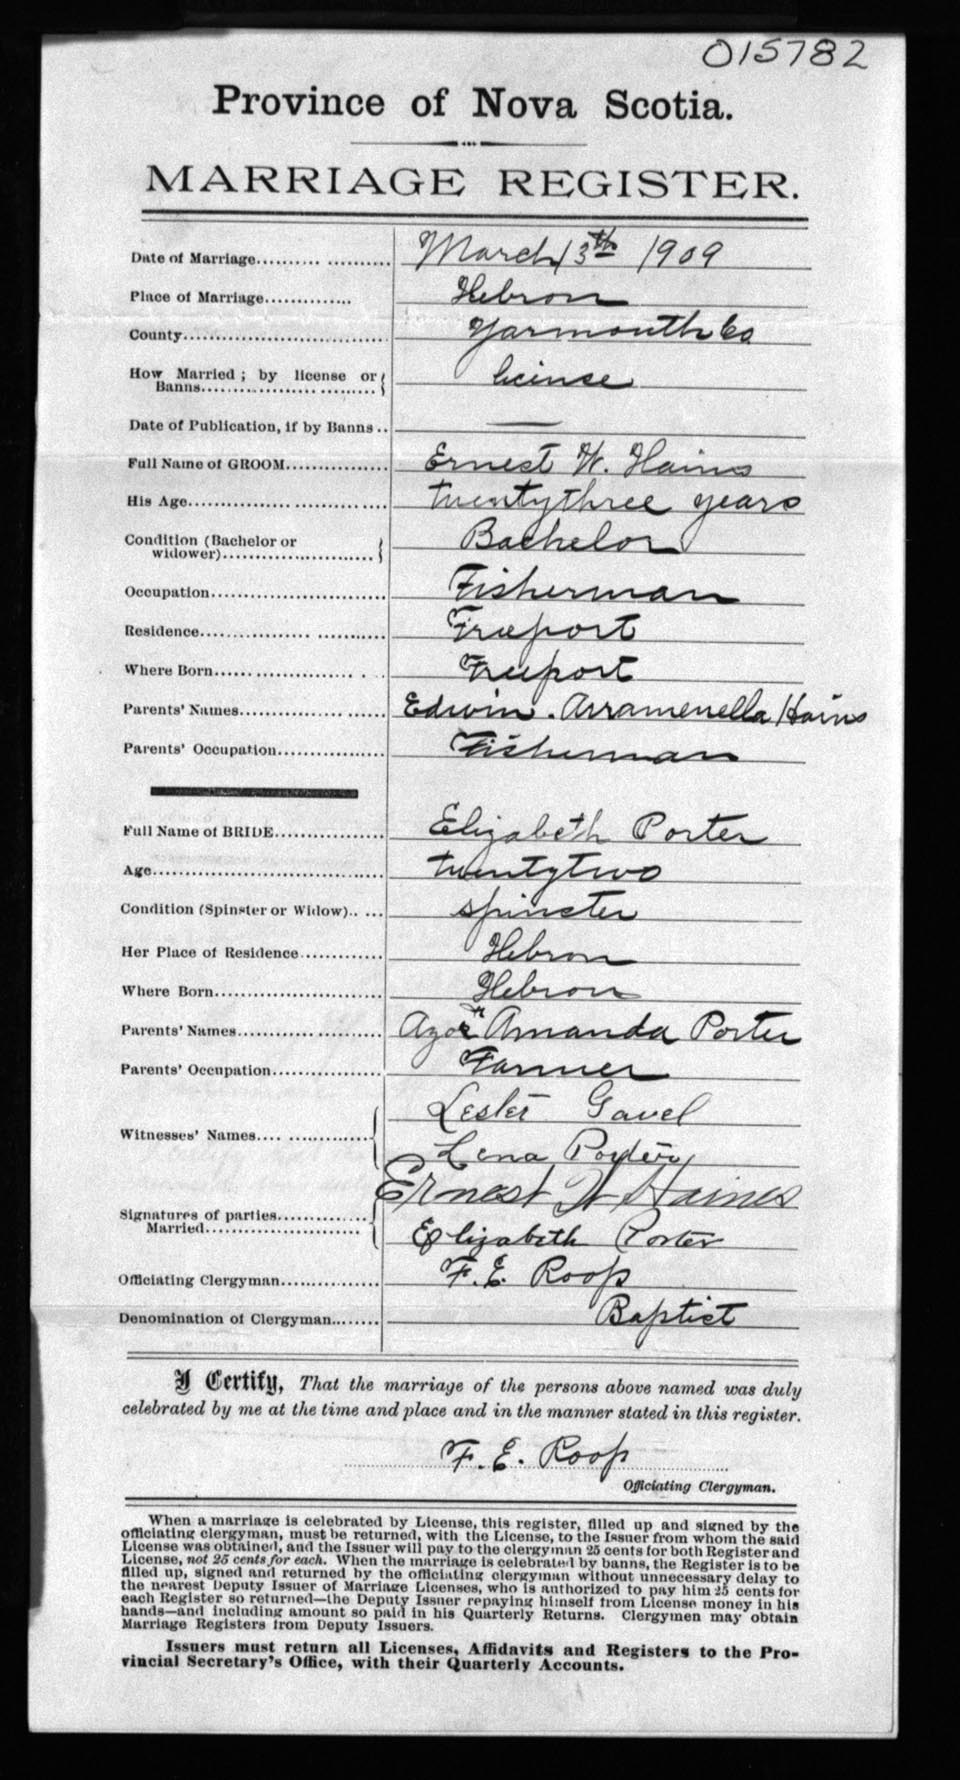 015782
Province of Nova Scotia.
MARRIAGE REGISTER.
Date of Marriage.......... .......... March 13th 1909
Place of Marriage.............. Hebron
County................................ Yarmouth Co
How Married ; by license or
Banns.............................. license
Date of Publication, if by Banns .. —
Full Name of GROOM................ Ernest W. Hains
His Age............................... twentythree years
Condition (Bachelor or
widower)........................... Bachelor
Occupation........................... Fisherman
Residence............................ Freeport
Where Born...................... . . Freeport
Parents' Names...................... Edwin . Arramenella Hains
Parents' Occupation................ Fisherman
Full Name of BRIDE................ Elizabeth Porter
Age.................................... twentytwo
Condition (Spinster or Widow).. ... spinster
Her Place of Residence............. Hebron
Where Born.......................... Hebron
Parents' Names...................... Azor & Amanda Porter
Parents' Occupation................. Farmer
Lester Gavel
Witnesses' Names.... ..............
Lena Porter
Ernest W Haines
Signatures of parties..............
Married........................
Elizabeth Porter
Officiating Clergyman............... F. E. Roop
Denomination of Clergyman........ Baptist
I Certify, That the marriage of the persons above named was duly
celebrated by me at the time and place and in the manner stated in this register.
F. E. Roop
Officiating Clergyman.
When a marriage is celebrated by License, this register, filled up and signed by the
officiating clergyman, must be returned, with the License, to the Issuer from whom the said
License was obtained, and the Issuer will pay to the clergyman 25 cents for both Register and
License, not 25 cents for each. When the marriage is celebrated by banns, the Register is to be
filled up, signed and returned by the officiating clergyman without unnecessary delay to
the nearest Deputy Issuer of Marriage Licenses, who is authorized to pay him 25 cents for
each Register so returned—the Deputy Issuer repaying himself from License money in his
hands—and including amount so paid in his Quarterly Returns. Clergymen may obtain
Marriage Registers from Deputy Issuers.
Issuers must return all Licenses, Affidavits and Registers to the Pro-
vincial Secretary's Office, with their Quarterly Accounts.